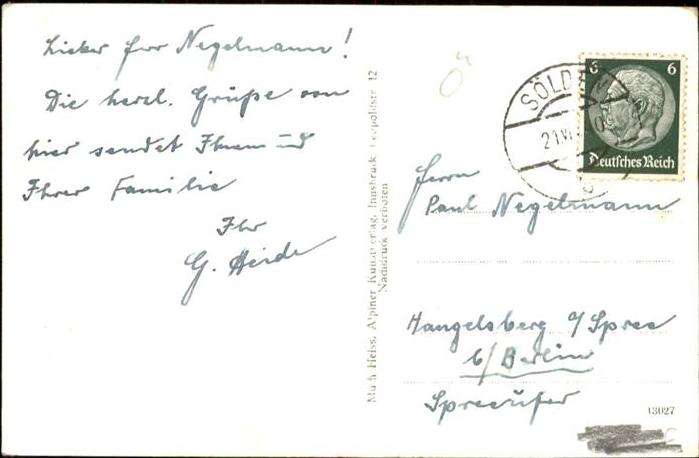 Lieber Herr Negelmann!
Die herzl. Grüße von
hier sendet Ihnen und
Ihrer Familie
Ihr
G. Heide
Much Heiss, Alpiner Kunstverlag, Innsbruck, Leopoldstr. 12
Nachdruck verboten
Ö
SÖLD
21.VI.
6 6
Deutsches Reich
Herrn
Paul Negelmann
Hangelsberg a/Spree
b/Berlin
Spreeufer
13027